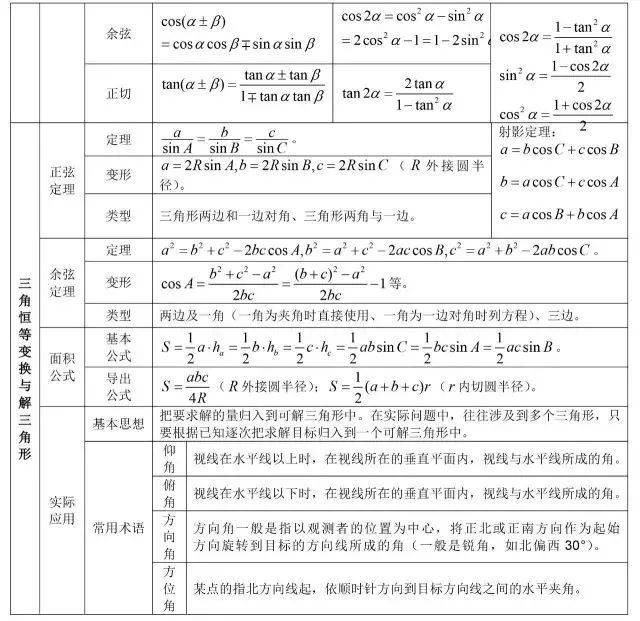 余弦
cos(α±β)
=cosαcosβ∓sinαsinβ
cos2α=cos²α−sin²α
=2cos²α−1=1−2sin²
cos2α=(1−tan²α)/(1+tan²α)
sin²α=(1−cos2α)/2
cos²α=(1+cos2α)/2
正切
tan(α±β)=(tanα±tanβ)/(1∓tanαtanβ)
tan2α=2tanα/(1−tan²α)
三角恒等变换与解三角形
正弦
定理
定理
a/sinA=b/sinB=c/sinC。
变形
a=2RsinA,b=2RsinB,c=2RsinC（R外接圆半
径）。
类型
三角形两边和一边对角、三角形两角与一边。
射影定理：
a=bcosC+ccosB
b=acosC+ccosA
c=acosB+bcosA
余弦
定理
定理
a²=b²+c²−2bccosA,b²=a²+c²−2accosB,c²=a²+b²−2abcosC。
变形
cosA=(b²+c²−a²)/2bc=((b+c)²−a²)/2bc−1等。
类型
两边及一角（一角为夹角时直接使用、一角为一边对角时列方程）、三边。
面积
公式
基本
公式
S=1/2a·hₐ=1/2b·h_b=1/2c·h_c=1/2absinC=1/2bcsinA=1/2acsinB。
导出
公式
S=abc/4R（R外接圆半径）；S=1/2(a+b+c)r（r内切圆半径）。
实际
应用
基本思想
把要求解的量归入到可解三角形中。在实际问题中，往往涉及到多个三角形，只
要根据已知逐次把求解目标归入到一个可解三角形中。
常用术语
仰
角
视线在水平线以上时，在视线所在的垂直平面内，视线与水平线所成的角。
俯
角
视线在水平线以下时，在视线所在的垂直平面内，视线与水平线所成的角。
方
向
角
方向角一般是指以观测者的位置为中心，将正北或正南方向作为起始
方向旋转到目标的方向线所成的角（一般是锐角，如北偏西30°）。
方
位
角
某点的指北方向线起，依顺时针方向到目标方向线之间的水平夹角。